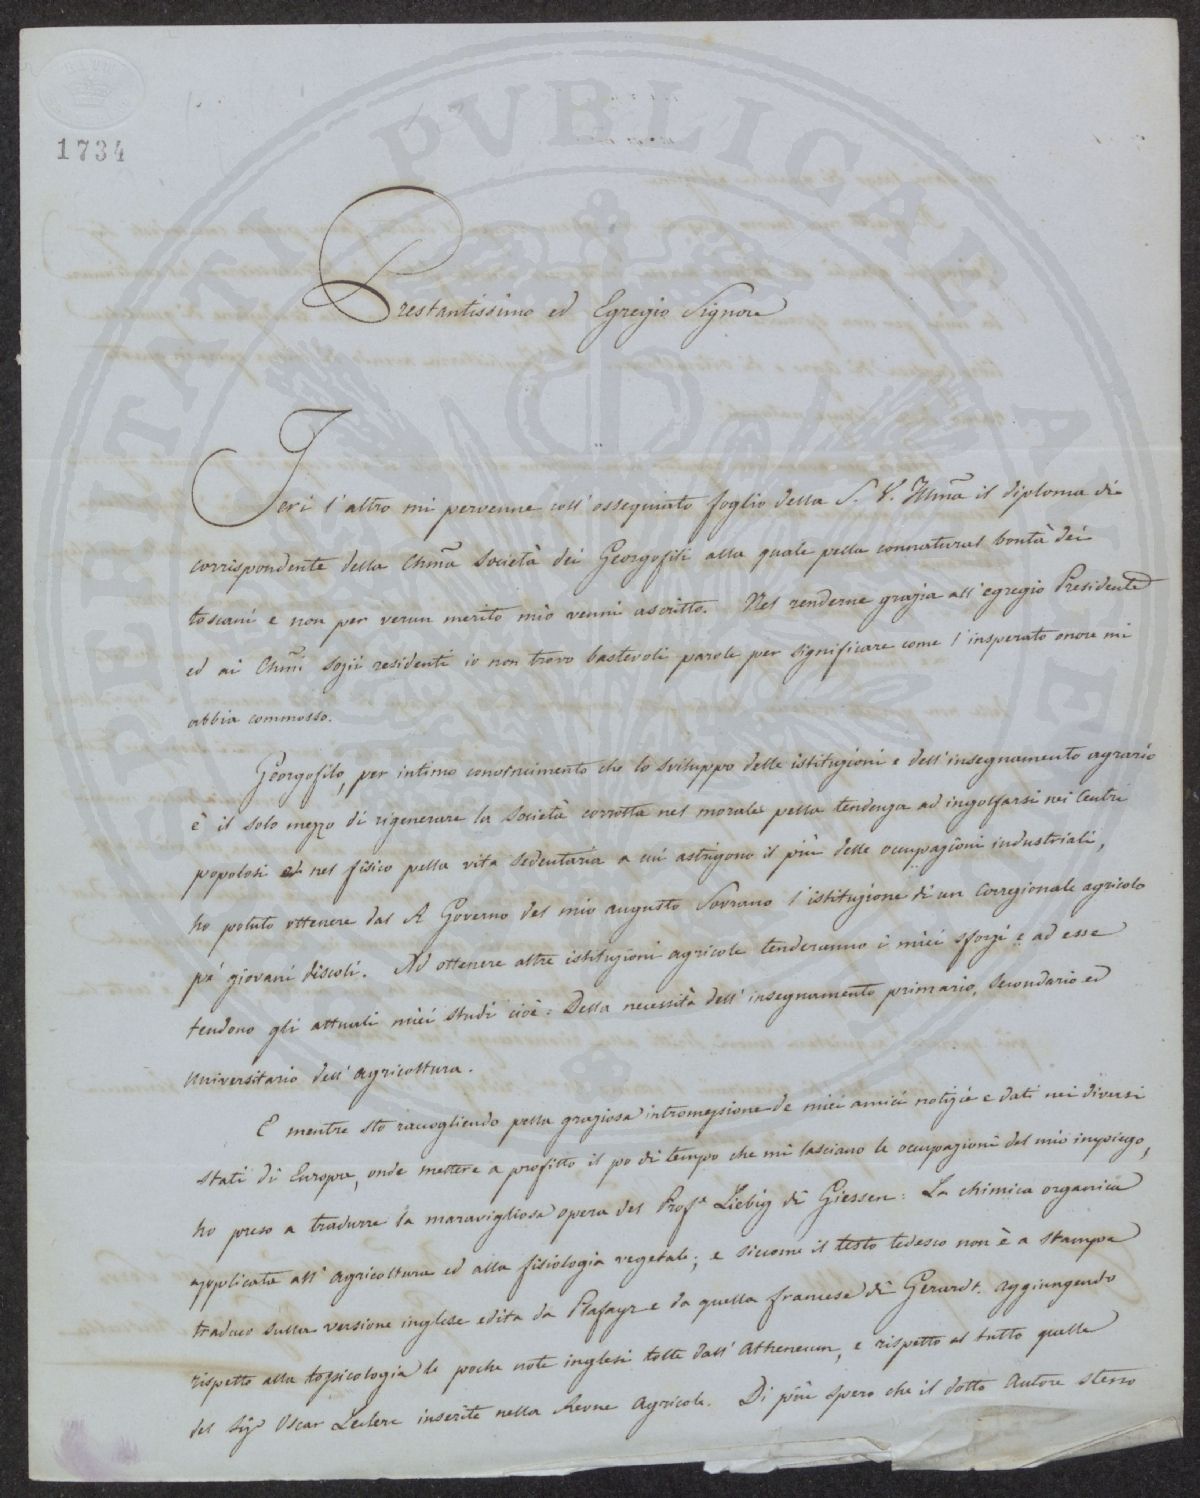 1734
PROSPERITATI PVBLICAE AVGENDAE
Prestantissimo ed Egregio Signore
Jeri l'altro mi pervenne coll'ossequiato foglio della S. V. Illma il diploma di
corrispondente della Chma Società dei Georgofili alla quale pella connatural bontà dei
toscani e non per verun merito mio venni ascritto. Nel renderne grazia all'egregio Presidente
ed ai Chmi Sozii residenti io non trovo bastevoli parole per significare come l'insperato onore mi
abbia commosso.
Georgofilo, per intimo convincimento che lo sviluppo delle istituzioni e dell'insegnamento agrario
è il solo mezzo di rigenerare la Società corrotta nel morale pella tendenza ad ingolfarsi nei Centri
popolosi ed nel fisico pella vita sedentaria a cui astrigono il più delle occupazioni industriali,
ho potuto ottenere dal R Governo del mio augusto Sovrano l'istituzione di un Correzionale agricolo
pe' giovani discoli. Ad ottenere altre istituzioni agricole tenderanno i miei sforzi e ad esse
tendono gli attuali miei studi cioè: Della necessità dell'insegnamento primario, secondario ed
Universitario dell'agricoltura.
E mentre sto raccogliendo pella graziosa intromessione de miei amici notizie e dati nei diversi
stati di Europa, onde mettere a profitto il po di tempo che mi lasciano le occupazioni del mio impiego,
ho preso a tradurre la maravigliosa opera del Profe Liebig di Giessen: La chimica organica
applicata all'agricoltura ed alla fisiologia vegetale; e siccome il testo tedesco non è a stampa
traduco sulla versione inglese edita da Plafayr e da quella francese di Gerardt. aggiungendo
rispetto alla tossicologia le poche note inglesi tolte dall'Atheneum, e rispetto al tutto quelle
del Sigr Oscar Leclerc inserite nella Revue Agricole. Di più spero che il dotto Autore stesso